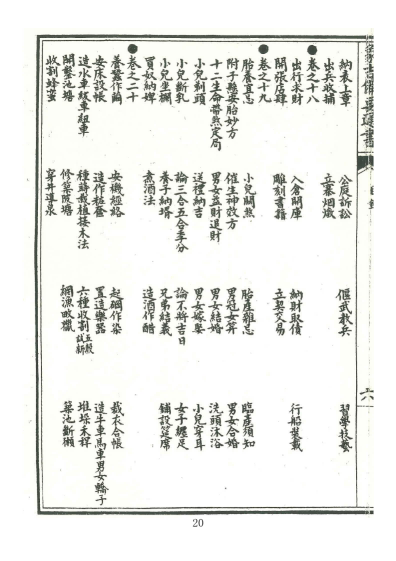 目錄
六
納表上章 公庭訴訟 偃武教兵 習學技藝
出兵收捕 立寨烟墩
卷之十八
出行求財 入倉開庫 納財取債 行船裝載
開張店肆 雕刻書籍 立契交易
卷之十九
胎養宜忌 小兒關煞 胎產雜忌 臨產須知
附子縣安胎妙方 催生神效方 男冠女笄 男女合婚
十二生命帶煞定局 男女益財退財 男女結婚 洗頭沐浴
小兒剃頭 送禮納吉 男女嫁娶 小兒穿耳
小兒斷乳 論三合五合季分 論不將吉日 女子纏足
小兒坐欄 養子納壻 兄弟結義 鋪設筵席
買奴納婢 煮酒法 造酒作醋
卷之二十
養蠶作繭 安機經絡 起綱作染 裁衣合帳
安床設帳 造作粧奩 置造樂器 造牛車馬車男女轎子
造水車紡車粗車 種蒔栽植接木法 六種收割五穀試新 堆垛禾稈
開鑿池塘 修築陂塘 網漁畋獵 築池斷獺
收割蜂蜜 穿井導泉
20